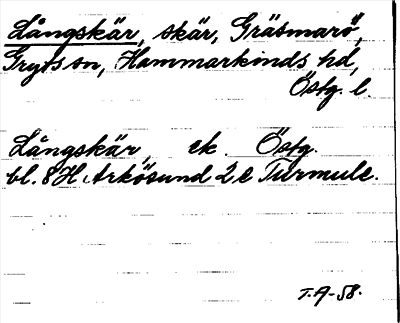 Långskär, skär, Gräsmarö,
Gryts sn, Hammarkinds hd,
Östg. l.
Långskär, ek. Östg.
bl. 8 H. Arkösund 2 e Turmulc.
T.A-58.